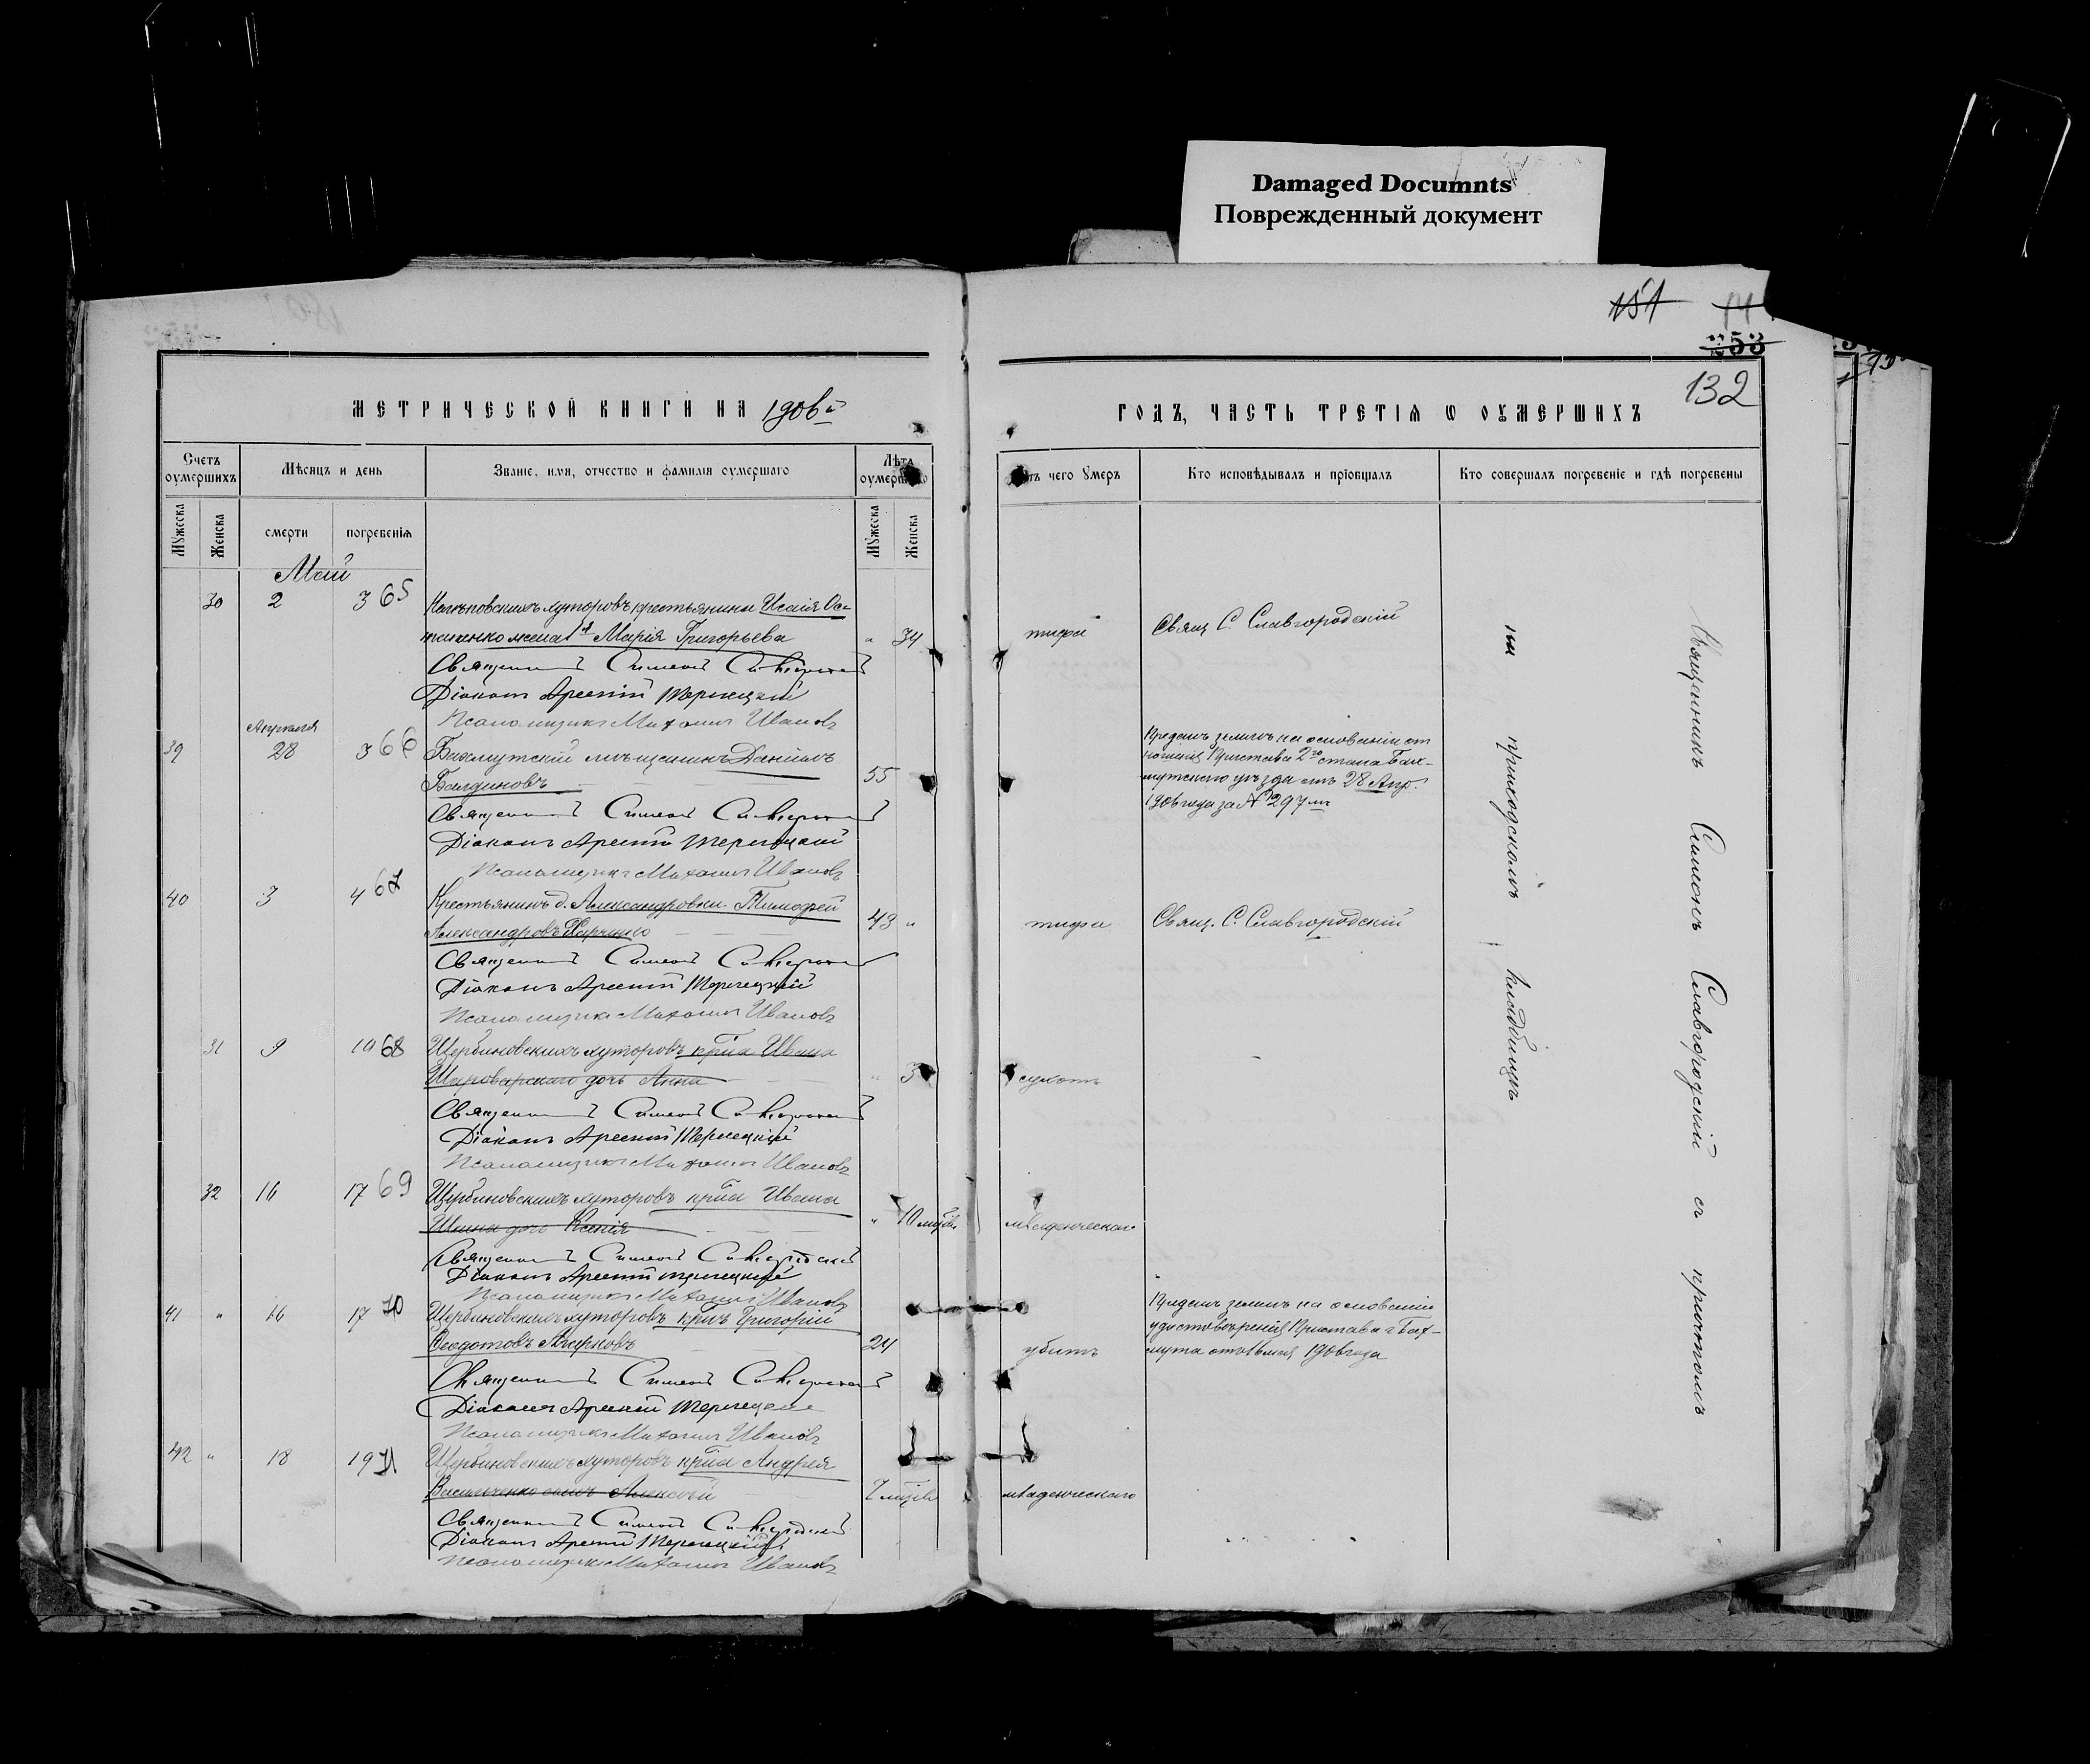 Damaged Documnts
Поврежденный документ
151
14
253
132
МЕТРИЧЕСКОЙ КНИГИ НА 1906й
ГОДЪ, ЧАСТЬ ТРЕТІЯ Ѡ ОУМЕРШИХЪ
Счетъ оумершихъ
Мѣсяцъ и день
Званіе, имя, отчество и фамилія оумершаго
Лѣта оумершаго
Отъ чего оумеръ
Кто исповѣдывалъ и пріобщалъ
Кто совершалъ погребеніе и гдѣ погребены
Мужеска
Женска
смерти
погребенія
Мужеска
Женска
Май
30 2 3 65 хуторовъ крестьянина Исаія Ос-
жена Марія Григорьева " 34 тифа Свящ. С. Славгородскій
Священникъ Симеонъ Славгородскій
Діаконъ Арсеній Терлецкій
Псаломщикъ Михаилъ Ивановъ
Апрѣля
39 28 3 66 Бахмутскій мѣщанинъ Даніилъ
Болдиновъ 55
Преданъ землѣ на основаніи от
ношенія Пристава 2го стана Бах-
мутскаго уѣзда отъ 28 Апр.
1906 года за № 297мъ
Священникъ Симеонъ Славгородскій
Діаконъ Арсеній Терлецкій
Псаломщикъ Михаилъ Ивановъ
40 3 4 67 Крестьянинъ д. Александровки Тимофей
Александровъ Харченко 43 " тифа Свящ. С. Славгородскій
Священникъ Симеонъ Славгородскій
Діаконъ Арсеній Терлецкій
Псаломщикъ Михаилъ Ивановъ
31 9 10 68 Щербиновскихъ хуторовъ кр-на Ивана
Шароварскаго дочь Анна " 3
Священникъ Симеонъ Славгородскій
Діаконъ Арсеній Терлецкій
Псаломщикъ Михаилъ Ивановъ
32 16 17 69 Щербиновскихъ хуторовъ кр-на Ивана
дочь Ксенія " 10 мѣсяц младенческаго
Священникъ Симеонъ Славгородскій
Діаконъ Арсеній Терлецкій
Псаломщикъ Михаилъ Ивановъ
41 " 16 17 70 Щербиновскихъ хуторовъ кр-нъ Григорій
Ѳеодотовъ 24 убитъ
Преданъ землѣ на основаніи
удостовѣренія Пристава г. Бах-
мута отъ мая 1906 года
Священникъ Симеонъ Славгородскій
Діаконъ Арсеній Терлецкій
Псаломщикъ Михаилъ Ивановъ
42 " 18 19 71 Щербиновскихъ хуторовъ кр-на Андрея
Васильченко сынъ Алексѣй 7 мѣсяц младенческаго
Священникъ Симеонъ Славгородскій
Діаконъ Арсеній Терлецкій
Псаломщикъ Михаилъ Ивановъ
Священникъ Симеонъ Славгородскій съ причтомъ
на приходскомъ кладбищѣ